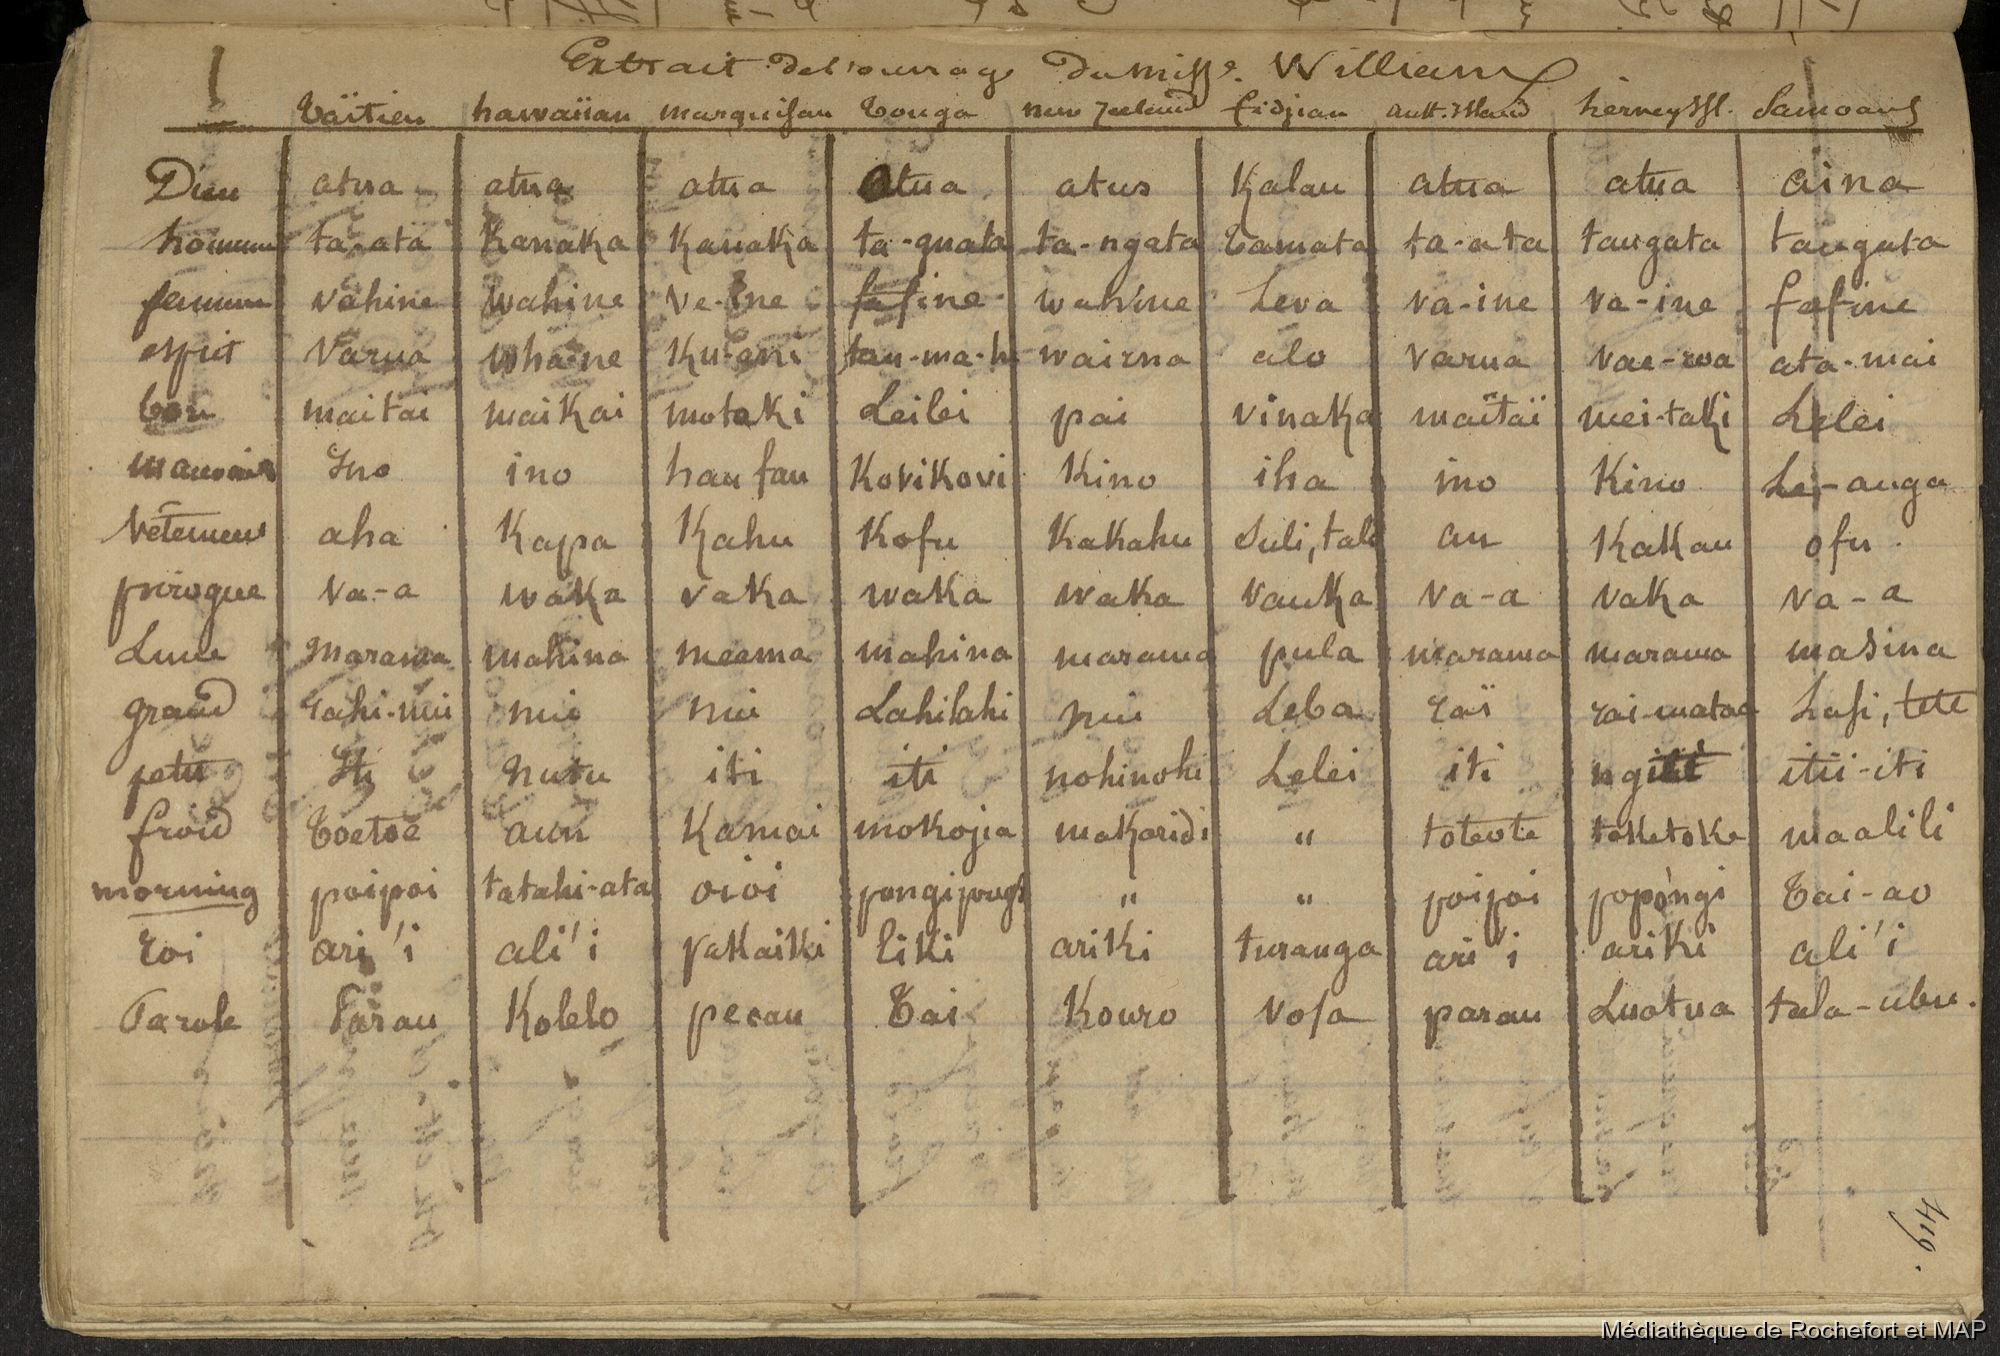 Extrait de l'ouvrage du Miss.e Williams
taïtien hawaiian marquisan Tonga new zeeland fidjian aust. Island hervey Isl. Samoans
Dieu atua atua atua atua atua Kalau atua atua aina
homme ta-ata Kanaka Kanaka ta-gnata ta-ngata tamata ta-ata tangata tangata
femme vahine wahine ve-ine fafine wahine Leva va-ine va-ine fafine
esprit Varua whaine Ku-ani tau-ma-h wairna alo varua vae-roa ata-mai
bon maitai maikai motaki Leilei pai vinaka maïtaï mei-taki Lelei
mauvais Ino ino haufau Kovikovi Kino iha ino Kino Le-anga
Vêtement aha Kapa Kahu Kofu Kakahu Suli, tala au Kakau ofu.
pirogue va-a waka vaka waka waka vauka va-a vaka va-a
Lune marama mahina meama mahina marama pula marama marama masina
grand rahi-nui nui nui Lahilahi nui Leba raï rai-mataa Lasi, tete
petit Iti nutu iti iti nohinohi Lelei iti ngiti itii-iti
froid Toetoe aun Kamai mokojia makaridi " toteote toketoke maalili
morning poipoi tatahi-ata oioi pongipongi " " poipoi popongi Tai-ao
roi ari'i ali'i pakaiki Eiki ariki turanga ari'i ariki ali'i
Parole Parau Kolelo pecau Tai Kouro Vosa parau Luatua tala-ubu.
419.
Médiathèque de Rochefort et MAP